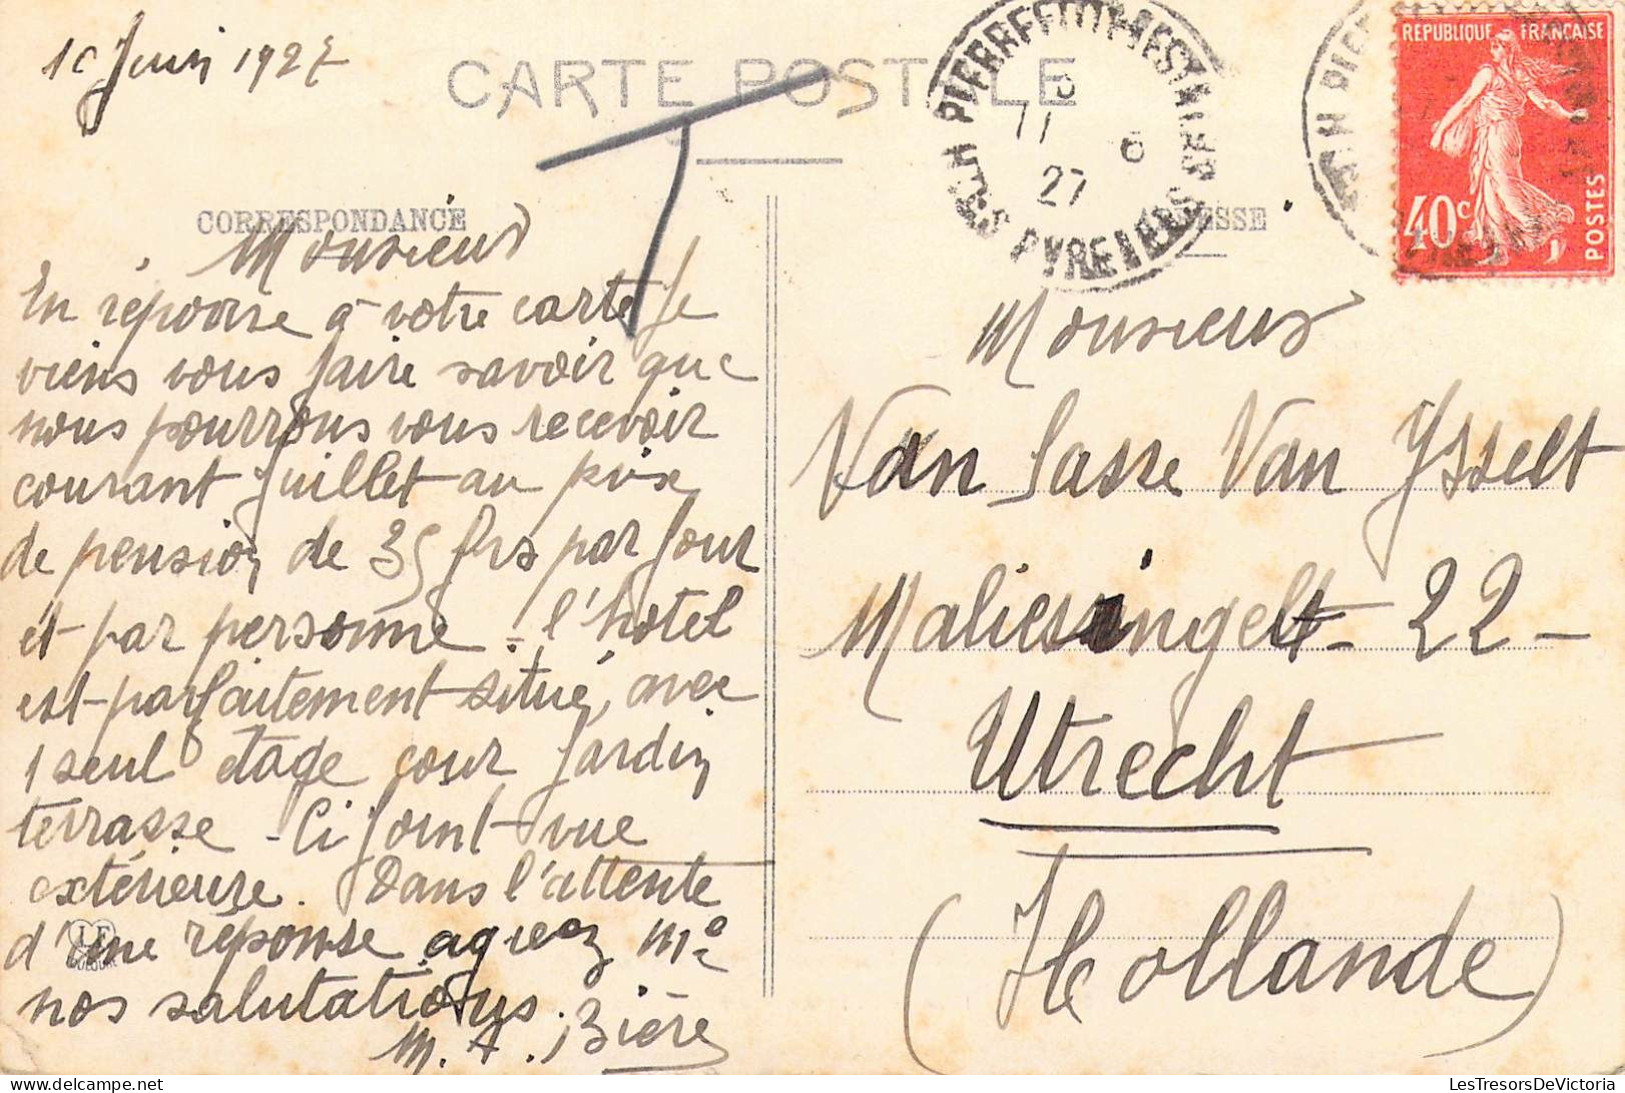 10 Juin 1927
CARTE POSTALE
CORRESPONDANCE
Monsieur
En réponse à votre carte Je
viens vous faire savoir que
nous pourrons vous recevoir
courant Juillet au prix
de pension de 35 frs par Jour
et par personne - l'hotel
est parfaitement situé, avec
1 seul étage cour Jardin
terrasse - Ci Joint vue
extérieure. Dans l'attente
d'une réponse agréez
nos salutations.
PIERREFITTE-NESTALAS
11 6
27
HTES PYRENEES
REPUBLIQUE FRANÇAISE
40c
POSTES
Monsieur
Van Sasse Van Ysselt
Maliesingel - 22 -
Utrecht
(Hollande)
LesTresorsDeVictoria